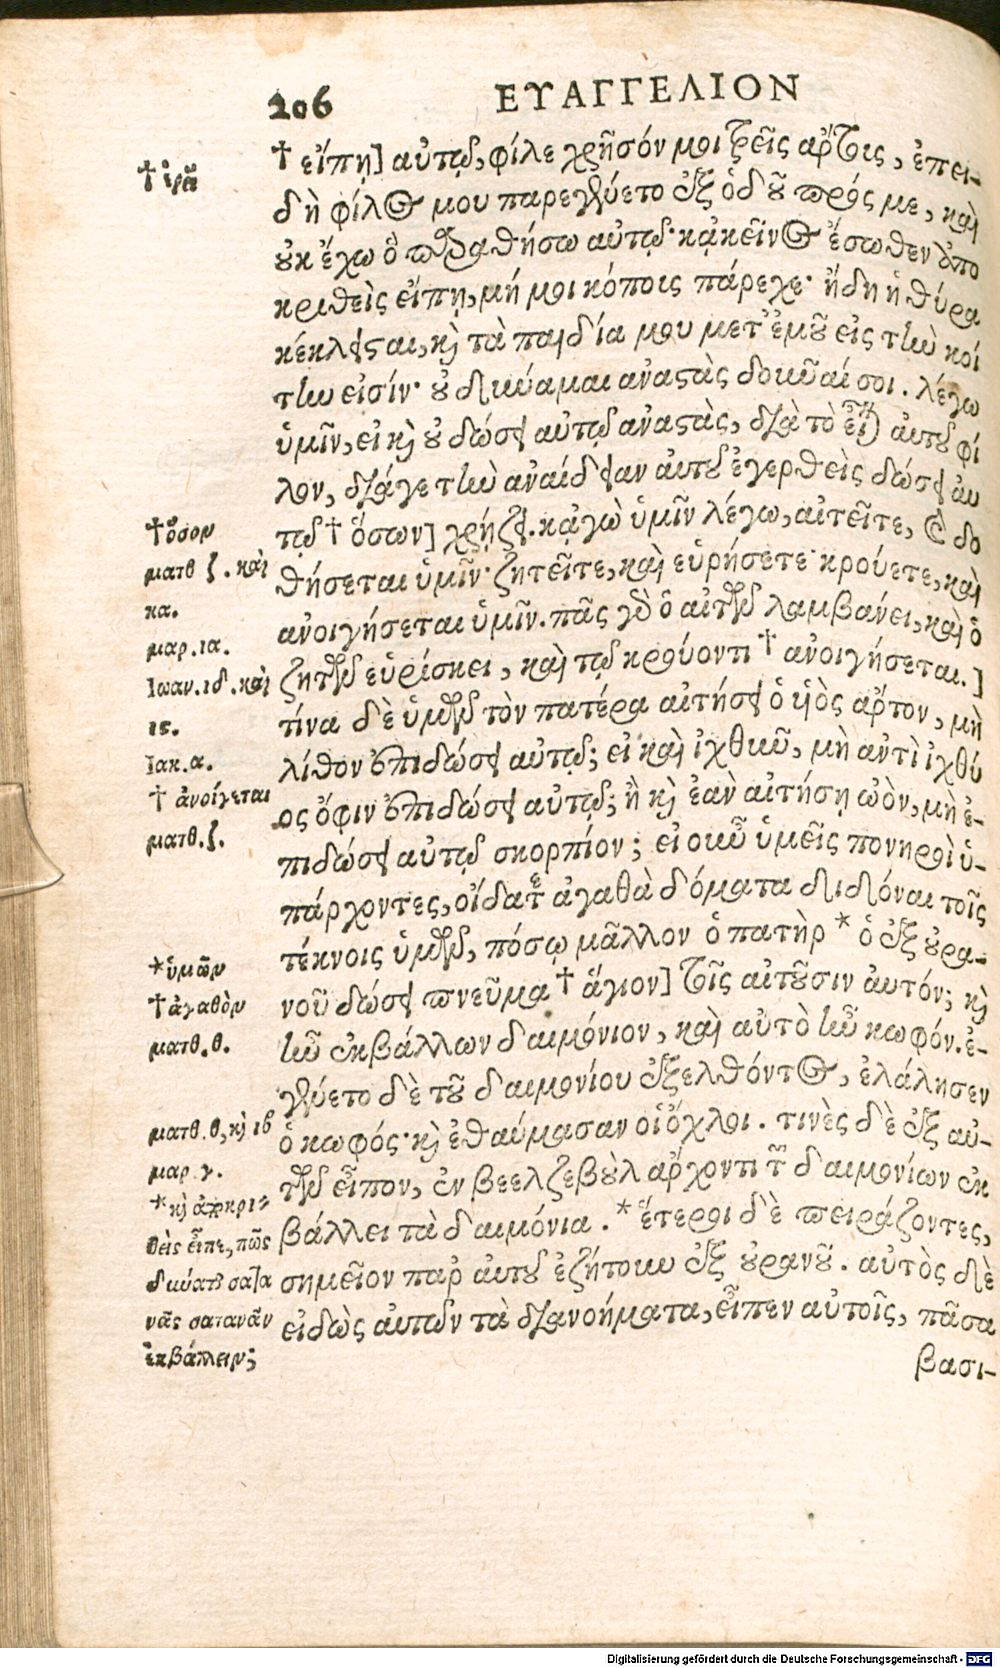 206
ΕΥΑΓΓΕΛΙΟΝ
† εἴπῃ] αὐτῷ, φίλε χρῆσόν μοι τρεῖς ἄρτους, ἐπει-
δὴ φίλος μου παρεγένετο ἐξ ὁδοῦ πρός με, καὶ
οὐκ ἔχω ὃ παραθήσω αὐτῷ· κἀκεῖνος ἔσωθεν ἀπο
κριθεὶς εἴπῃ, μή μοι κόπους πάρεχε· ἤδη ἡ θύρα
κέκλεισται, καὶ τὰ παιδία μου μετ' ἐμοῦ εἰς τὴν κοί
την εἰσίν· οὐ δύναμαι ἀναστὰς δοῦναί σοι. λέγω
ὑμῖν, εἰ καὶ οὐ δώσει αὐτῷ ἀναστὰς, διὰ τὸ εἶναι αὐτοῦ φί
λον, διάγε τὴν ἀναίδειαν αὐτοῦ ἐγερθεὶς δώσει αὐ
τῷ † ὅσων] χρῄζει. κᾀγὼ ὑμῖν λέγω, αἰτεῖτε, καὶ δο
θήσεται ὑμῖν· ζητεῖτε, καὶ εὑρήσετε· κρούετε, καὶ
ἀνοιγήσεται ὑμῖν. πᾶς γὰρ ὁ αἰτῶν λαμβάνει, καὶ ὁ
ζητῶν εὑρίσκει, καὶ τῷ κρούοντι † ἀνοιγήσεται.]
τίνα δὲ ὑμῶν τὸν πατέρα αἰτήσει ὁ υἱὸς ἄρτον, μὴ
λίθον ἐπιδώσει αὐτῷ; εἰ καὶ ἰχθὺν, μὴ ἀντὶ ἰχθύ
ος ὄφιν ἐπιδώσει αὐτῷ; ἢ καὶ ἐὰν αἰτήσῃ ὠὸν, μὴ ἐ-
πιδώσει αὐτῷ σκορπίον; εἰ οὖν ὑμεῖς πονηροὶ ὑ-
πάρχοντες, οἴδατε ἀγαθὰ δόματα διδόναι τοῖς
τέκνοις ὑμῶν, πόσῳ μᾶλλον ὁ πατὴρ * ὁ ἐξ οὐρα-
νοῦ δώσει πνεῦμα † ἅγιον] τοῖς αἰτοῦσιν αὐτόν; καὶ
ἦν ἐκβάλλων δαιμόνιον, καὶ αὐτὸ ἦν κωφόν. ἐ-
γένετο δὲ τοῦ δαιμονίου ἐξελθόντος, ἐλάλησεν
ὁ κωφός· καὶ ἐθαύμασαν οἱ ὄχλοι. τινὲς δὲ ἐξ αὐ-
τῶν εἶπον, ἐν βεελζεβοὺλ ἄρχοντι τῶν δαιμονίων ἐκ
βάλλει τὰ δαιμόνια. * ἕτεροι δὲ πειράζοντες,
σημεῖον παρ' αὐτοῦ ἐζήτουν ἐξ οὐρανοῦ. αὐτὸς δὲ
εἰδὼς αὐτῶν τὰ διανοήματα, εἶπεν αὐτοῖς, πᾶσα
βασι-
† ἐρεῖ
† ὅσον
ματθ ζ. καὶ
κα.
μαρ. ια.
Ιωαν. ιδ. καὶ
ις.
Ιακ. α.
† ἀνοίγεται
ματθ. ζ.
* ὑμῶν
† ἀγαθὸν
ματθ. θ.
ματθ. θ, καὶ ιβ
μαρ γ.
* καὶ ἀποκρι-
θεὶς εἶπε, πῶς
δύναται σατα
νᾶς σατανᾶν
ἐκβάλλειν;
Digitalisierung gefördert durch die Deutsche Forschungsgemeinschaft - DFG